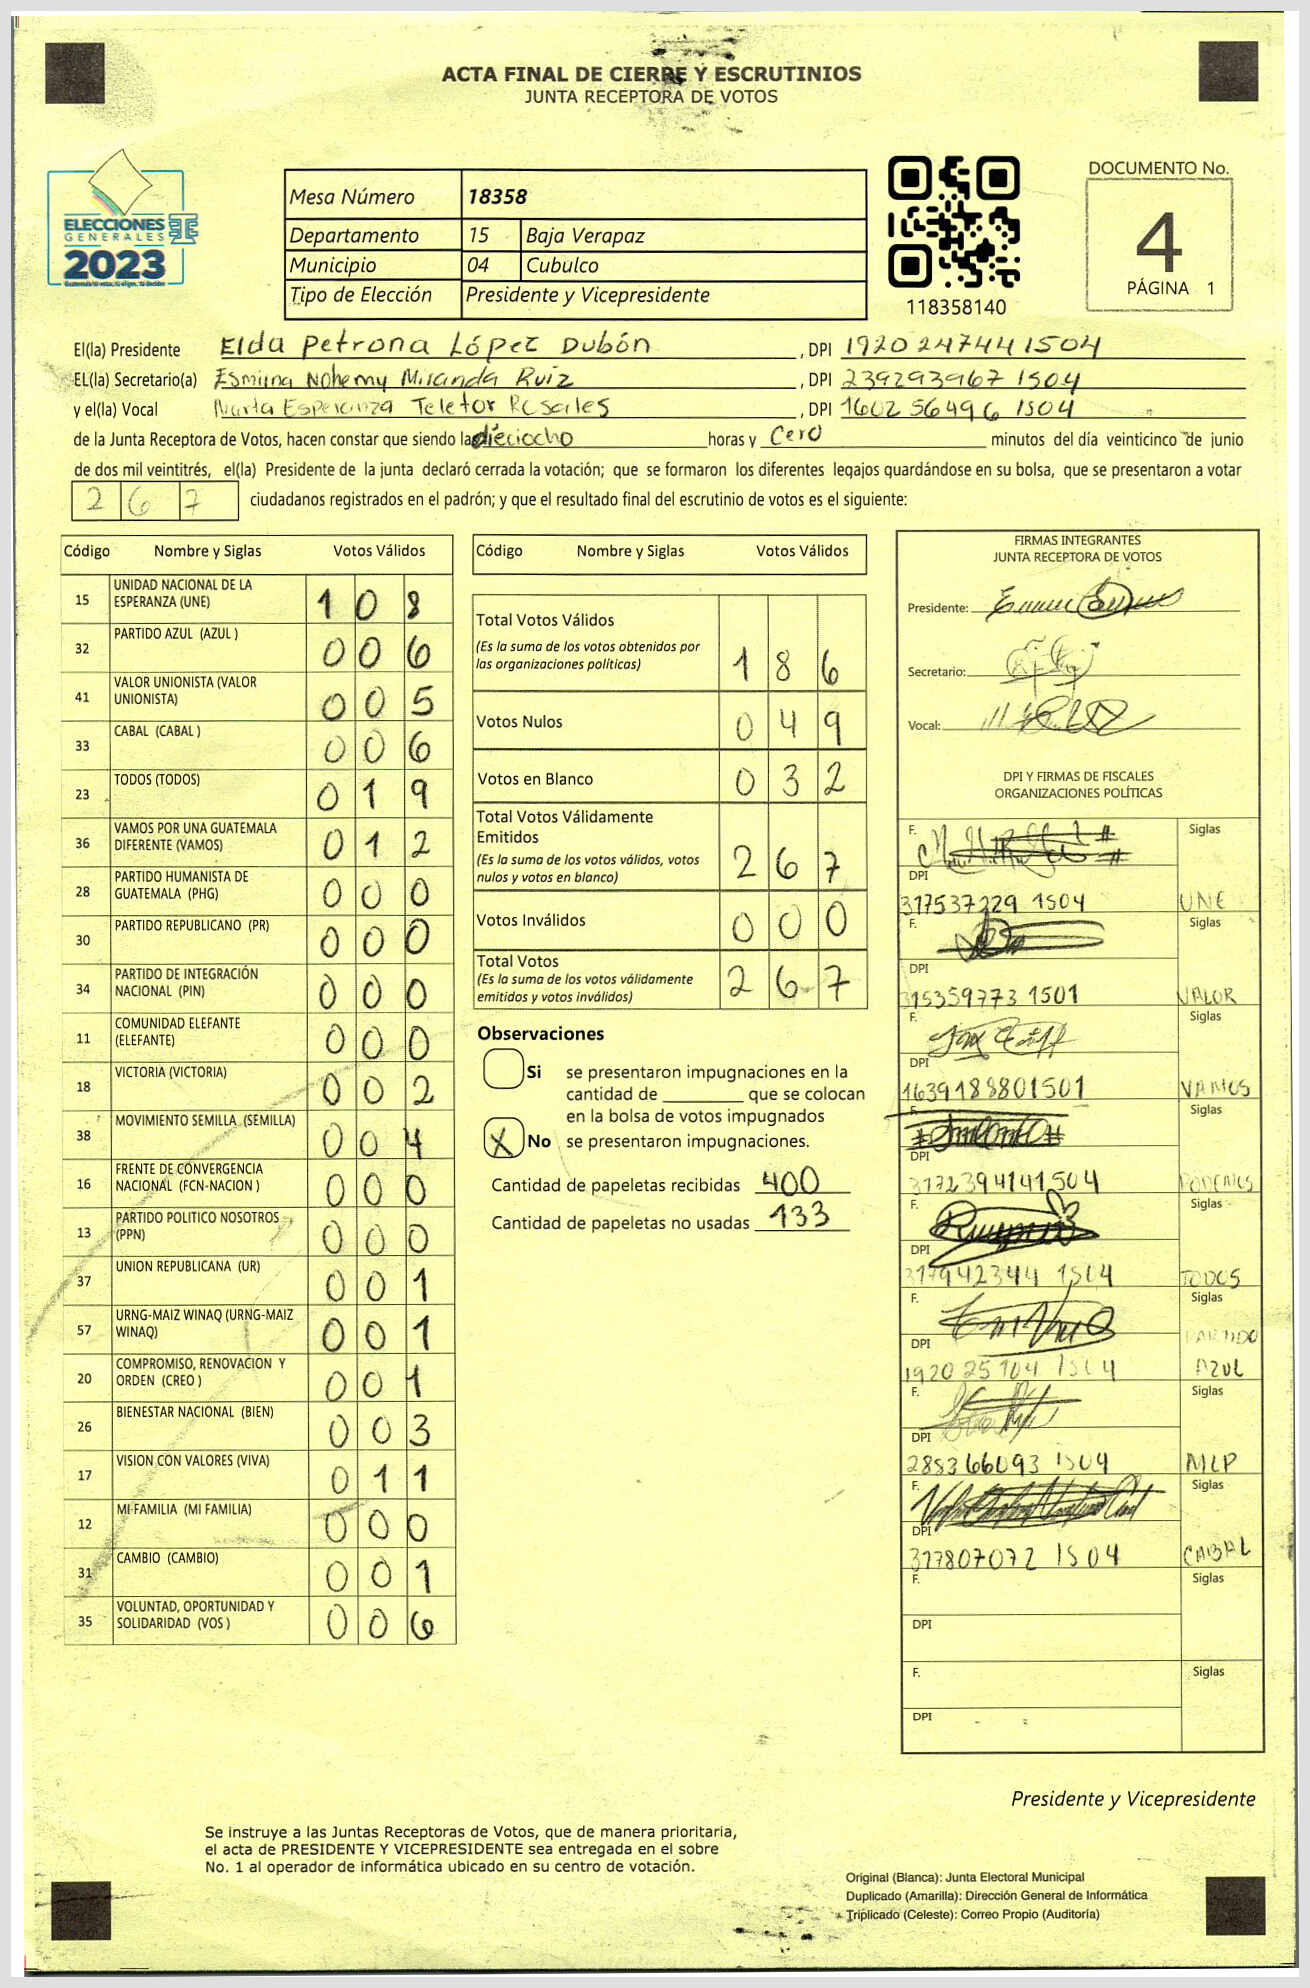 ACTA FINAL DE CIERRE Y ESCRUTINIOS
JUNTA RECEPTORA DE VOTOS
ELECCIONES
GENERALES
2023
Mesa Número 18358
Departamento 15 Baja Verapaz
Municipio 04 Cubulco
Tipo de Elección Presidente y Vicepresidente
118358140
DOCUMENTO No.
4
PÁGINA 1
El(la) Presidente Elda Petrona López Dubón , DPI 1920247441504
EL(la) Secretario(a) Esmirna Nohemy Miranda Ruiz , DPI 239293967 1504
y el(la) Vocal Marta Esperanza Teletor Rosales , DPI 1602 56496 1504
de la Junta Receptora de Votos, hacen constar que siendo las dieciocho horas y cero minutos del día veinticinco de junio
de dos mil veintitrés, el(la) Presidente de la junta declaró cerrada la votación; que se formaron los diferentes legajos guardándose en su bolsa, que se presentaron a votar
267 ciudadanos registrados en el padrón; y que el resultado final del escrutinio de votos es el siguiente:
Código Nombre y Siglas Votos Válidos
15 UNIDAD NACIONAL DE LA ESPERANZA (UNE) 108
32 PARTIDO AZUL (AZUL ) 006
41 VALOR UNIONISTA (VALOR UNIONISTA) 005
33 CABAL (CABAL ) 006
23 TODOS (TODOS) 019
36 VAMOS POR UNA GUATEMALA DIFERENTE (VAMOS) 012
28 PARTIDO HUMANISTA DE GUATEMALA (PHG) 000
30 PARTIDO REPUBLICANO (PR) 000
34 PARTIDO DE INTEGRACIÓN NACIONAL (PIN) 000
11 COMUNIDAD ELEFANTE (ELEFANTE) 000
18 VICTORIA (VICTORIA) 002
38 MOVIMIENTO SEMILLA (SEMILLA) 004
16 FRENTE DE CONVERGENCIA NACIONAL (FCN-NACION ) 000
13 PARTIDO POLITICO NOSOTROS (PPN) 000
37 UNION REPUBLICANA (UR) 001
57 URNG-MAIZ WINAQ (URNG-MAIZ WINAQ) 001
20 COMPROMISO, RENOVACION Y ORDEN (CREO ) 001
26 BIENESTAR NACIONAL (BIEN) 003
17 VISION CON VALORES (VIVA) 011
12 MI FAMILIA (MI FAMILIA) 000
31 CAMBIO (CAMBIO) 001
35 VOLUNTAD, OPORTUNIDAD Y SOLIDARIDAD (VOS ) 006
Código Nombre y Siglas Votos Válidos
Total Votos Válidos
(Es la suma de los votos obtenidos por las organizaciones políticas) 186
Votos Nulos 049
Votos en Blanco 032
Total Votos Válidamente Emitidos
(Es la suma de los votos válidos, votos nulos y votos en blanco) 267
Votos Inválidos 000
Total Votos
(Es la suma de los votos válidamente emitidos y votos inválidos) 267
Observaciones
Si se presentaron impugnaciones en la
cantidad de que se colocan
en la bolsa de votos impugnados
X No se presentaron impugnaciones.
Cantidad de papeletas recibidas 400
Cantidad de papeletas no usadas 133
FIRMAS INTEGRANTES
JUNTA RECEPTORA DE VOTOS
Presidente:
Secretario:
Vocal:
DPI Y FIRMAS DE FISCALES
ORGANIZACIONES POLÍTICAS
F. Siglas
DPI
317537229 1504 UNE
F. Siglas
DPI
315359773 1501 VALOR
F. Siglas
DPI
1639188801501 VAMOS
F. Siglas
DPI
3172394141504 PODEMOS
F. Siglas
DPI
317942344 1504 TODOS
F. Siglas
DPI PARTIDO
1920 25104 1504 AZUL
F. Siglas
DPI
285366093 1504 MLP
F. Siglas
DPI
317807072 1504 CABAL
F. Siglas
DPI
F. Siglas
DPI
Presidente y Vicepresidente
Se instruye a las Juntas Receptoras de Votos, que de manera prioritaria,
el acta de PRESIDENTE Y VICEPRESIDENTE sea entregada en el sobre
No. 1 al operador de informática ubicado en su centro de votación.
Original (Blanca): Junta Electoral Municipal
Duplicado (Amarilla): Dirección General de Informática
Triplicado (Celeste): Correo Propio (Auditoría)